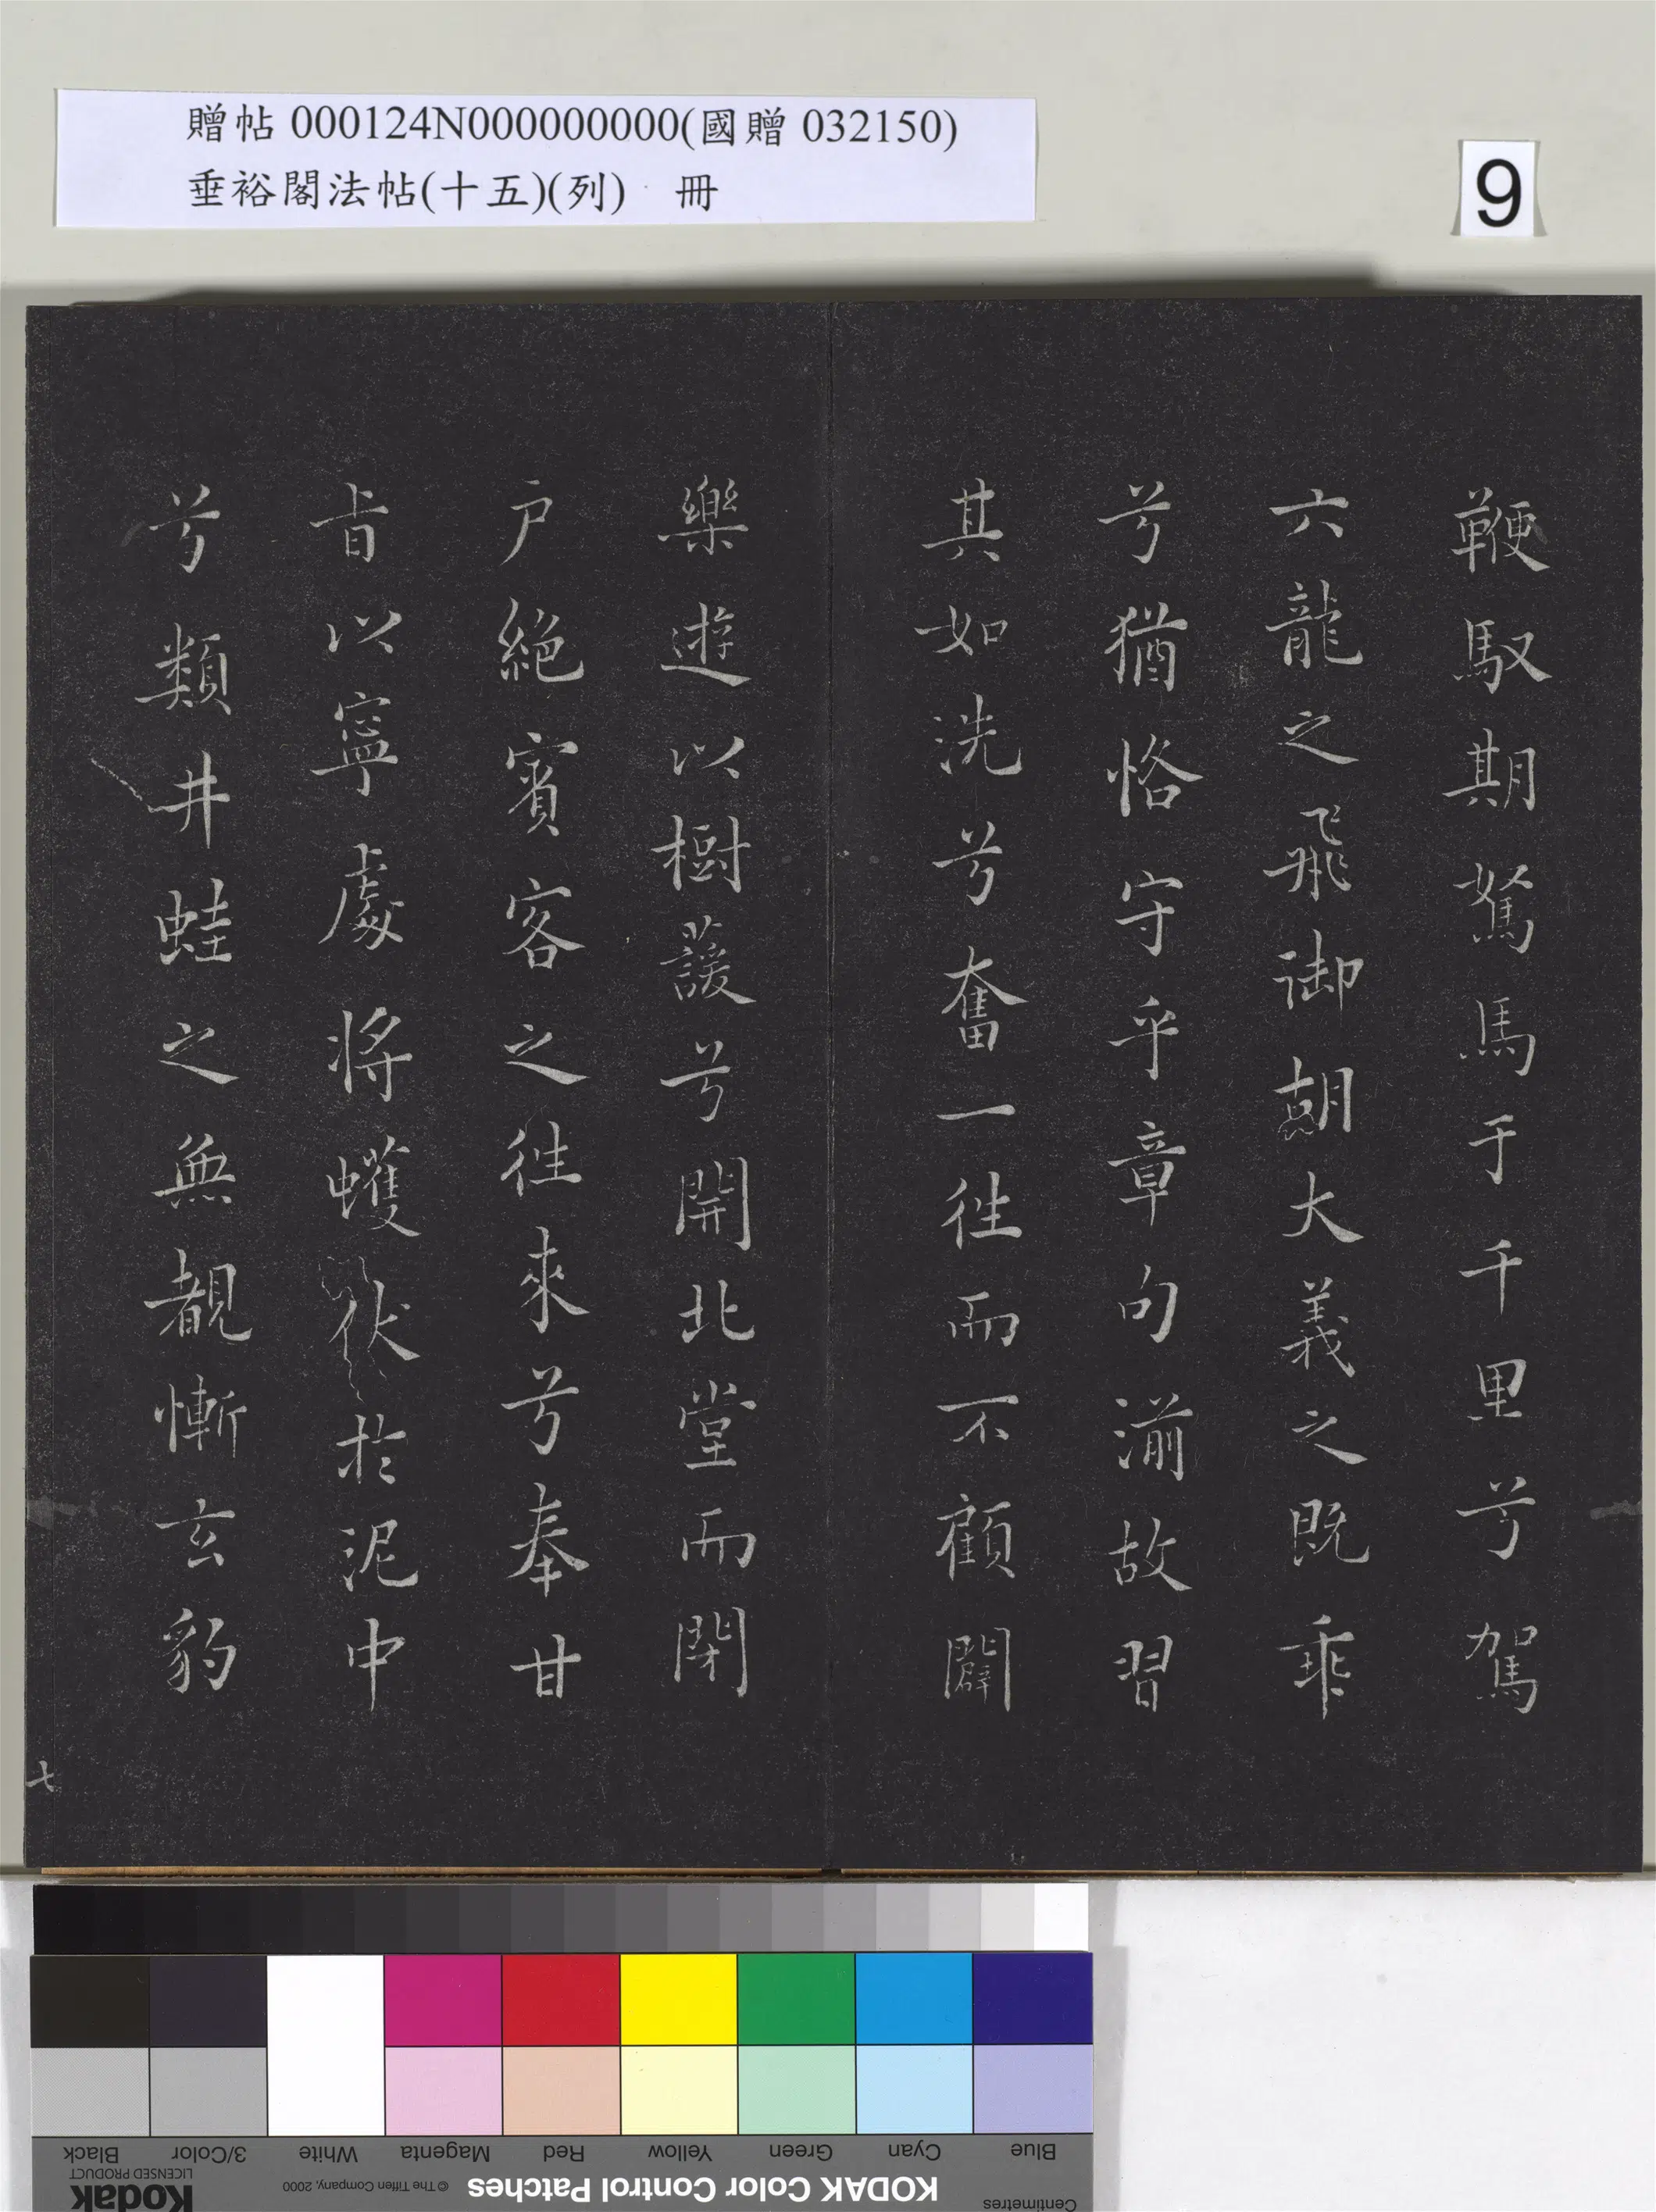 贈帖 000124N000000000(國贈 032150)
垂裕閣法帖(十五)(列) 冊
9
鞭馭期駑馬于千里兮駕
六龍之飛御朝大義之既乖
兮猶恪守乎章句湔故習
其如洗兮奮一往而不顧闢
樂遊以樹諼兮開北堂而閉
戶絕賓客之往來兮奉甘
旨以寧處將蠖伏於泥中
兮類井蛙之無覩慚玄豹
七
Blue
Cyan
Green
Yellow
Red
Magenta
White
3/Color
Black
Centimetres
KODAK Color Control Patches
© The Tiffen Company, 2000
Kodak
LICENSED PRODUCT